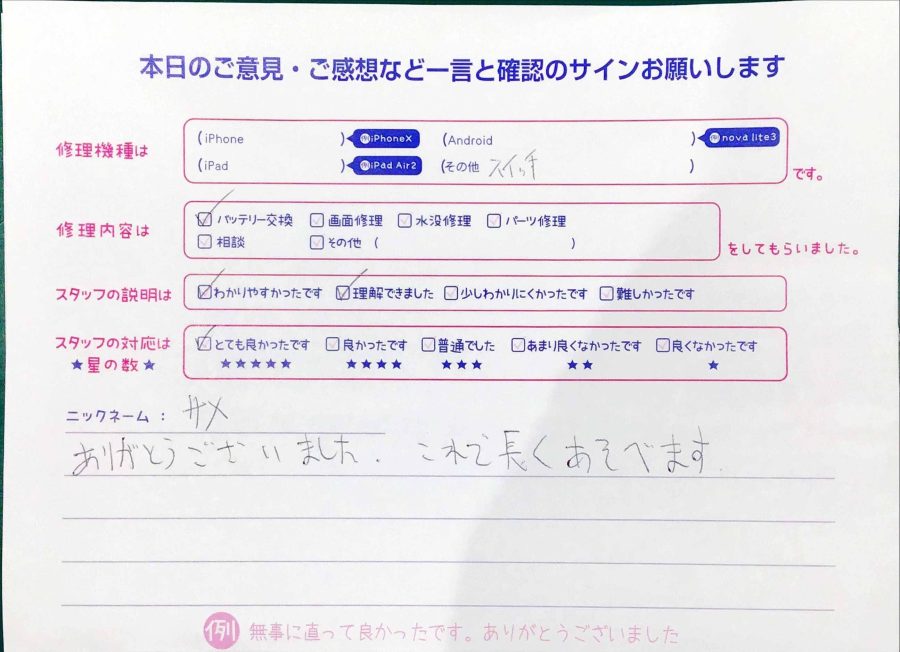 本日のご意見・ご感想など一言と確認のサインお願いします
修理機種は
(iPhone ) 例iPhoneX (Android ) 例nova lite3
(iPad ) 例iPad Air2 (その他 スイッチ )
です。
修理内容は
バッテリー交換 画面修理 水没修理 パーツ修理
相談 その他 ( )
をしてもらいました。
スタッフの説明は わかりやすかったです 理解できました 少しわかりにくかったです 難しかったです
スタッフの対応は とても良かったです 良かったです 普通でした あまり良くなかったです 良くなかったです
★星の数★ ★★★★★ ★★★★ ★★★ ★★ ★
ニックネーム : サメ
ありがとうございました. これで長くあそべます.
例 無事に直って良かったです。ありがとうございました